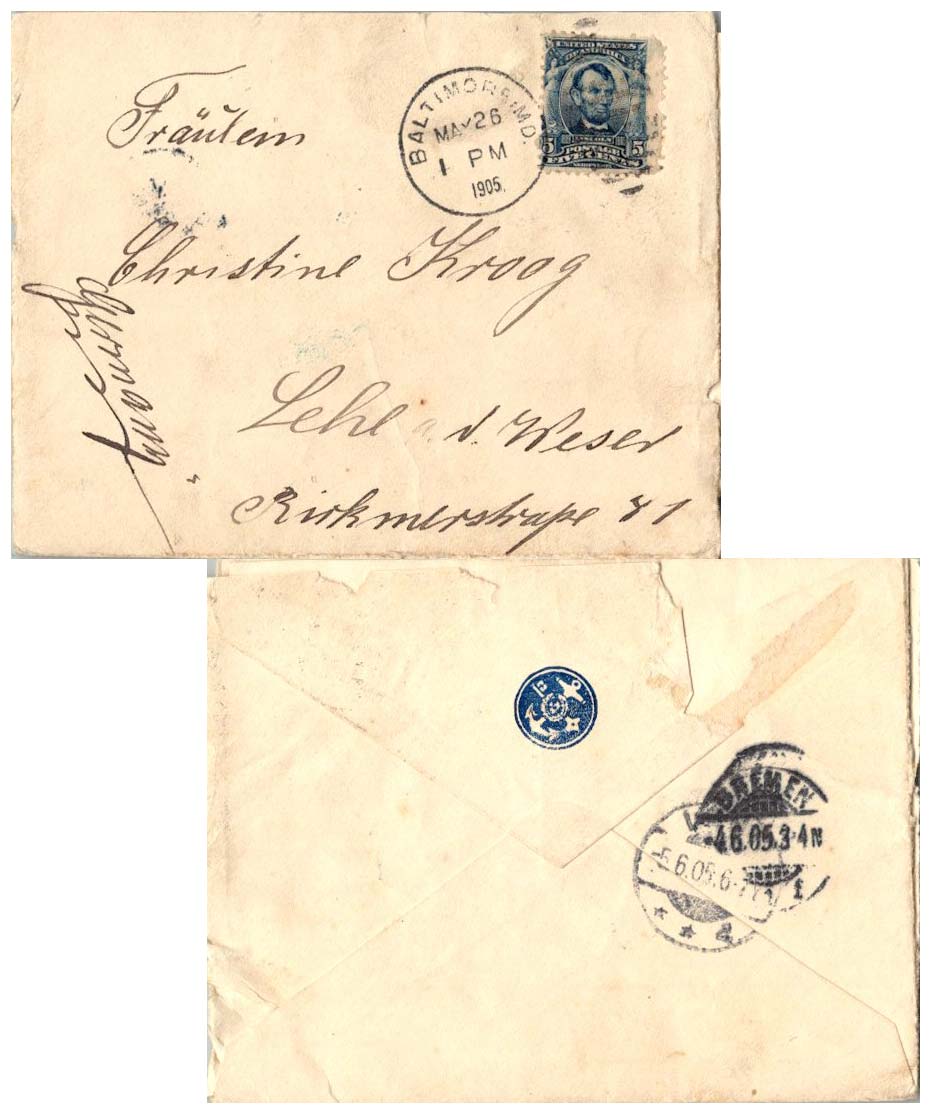 Fräulein
BALTIMORE, MD.
MAY 26
1 PM
1905.
UNITED STATES
OF AMERICA
LINCOLN
5 POSTAGE 5
FIVE CENTS
Christine Kroog
Lehe a. d. Weser
Kirkmerstraße 81
Germany
BREMEN
-4.6.05.3-4N
1
-5.6.05.6-7V
* * d